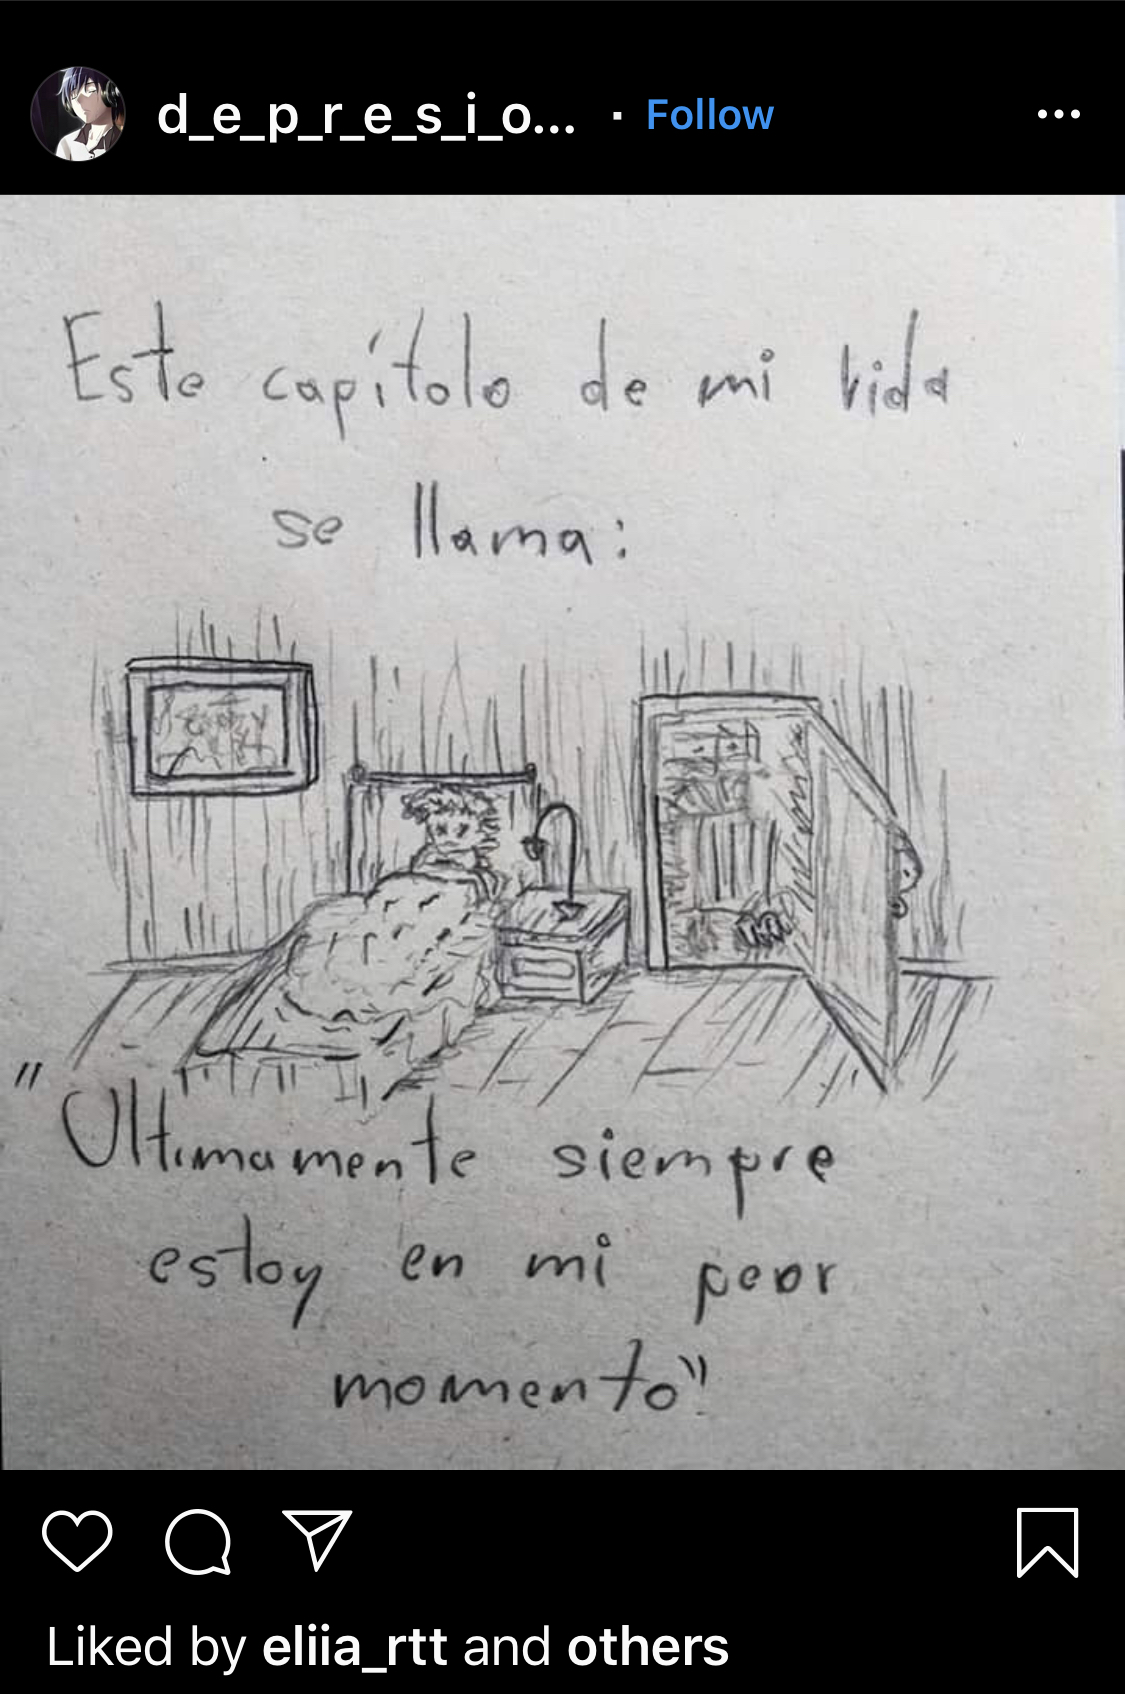 d_e_p_r_e_s_i_o... · Follow
Este capítolo de mi vida
se llama:
"Ultimamente siempre
estoy en mi peor
momento"
Liked by eliia_rtt and others